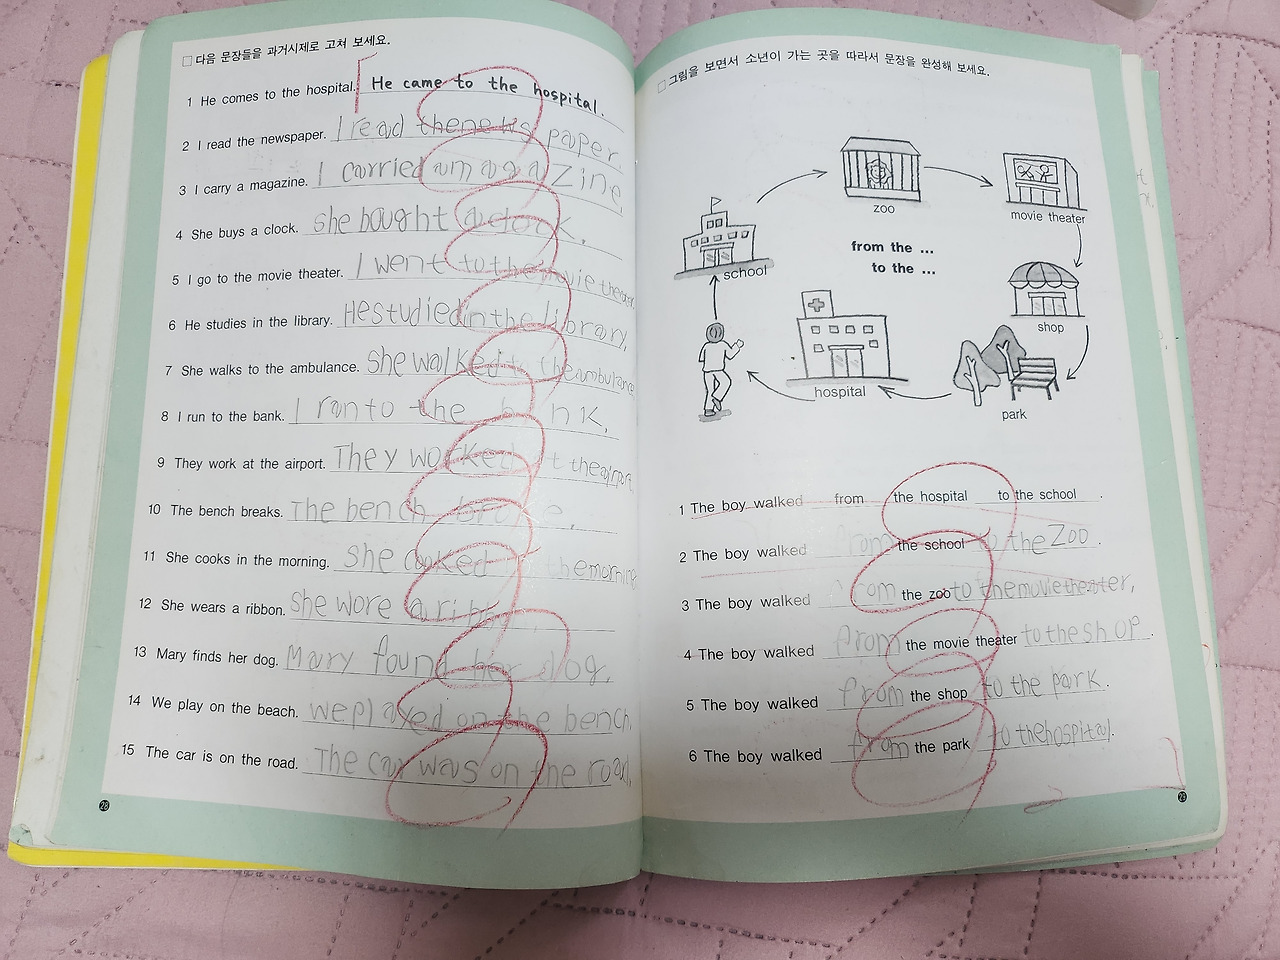 □ 다음 문장들을 과거시제로 고쳐 보세요.
1 He comes to the hospital. He came to the hospital.
2 I read the newspaper. I read thenews paper.
3 I carry a magazine. I carried amagazine.
4 She buys a clock. she bought a clock.
5 I go to the movie theater. I went tothemovie theater.
6 He studies in the library. Hestudied inthe library.
7 She walks to the ambulance. she walked to theambulance
8 I run to the bank. I ran to the bank.
9 They work at the airport. They worked at theairport.
10 The bench breaks. The bench broke.
11 She cooks in the morning. she cooked in themorning
12 She wears a ribbon. she wore a
13 Mary finds her dog. Mary found her dog.
14 We play on the beach. weplayed on the bench.
15 The car is on the road. The car was on the road.
28
□ 그림을 보면서 소년이 가는 곳을 따라서 문장을 완성해 보세요.
zoo
movie theater
school
from the ...
to the ...
shop
hospital
park
1 The boy walked from the hospital to the school .
2 The boy walked from the school to the Zoo .
3 The boy walked from the zoo to themovietheater.
4 The boy walked from the movie theater to the shop .
5 The boy walked from the shop to the park .
6 The boy walked from the park to thehospital.
29